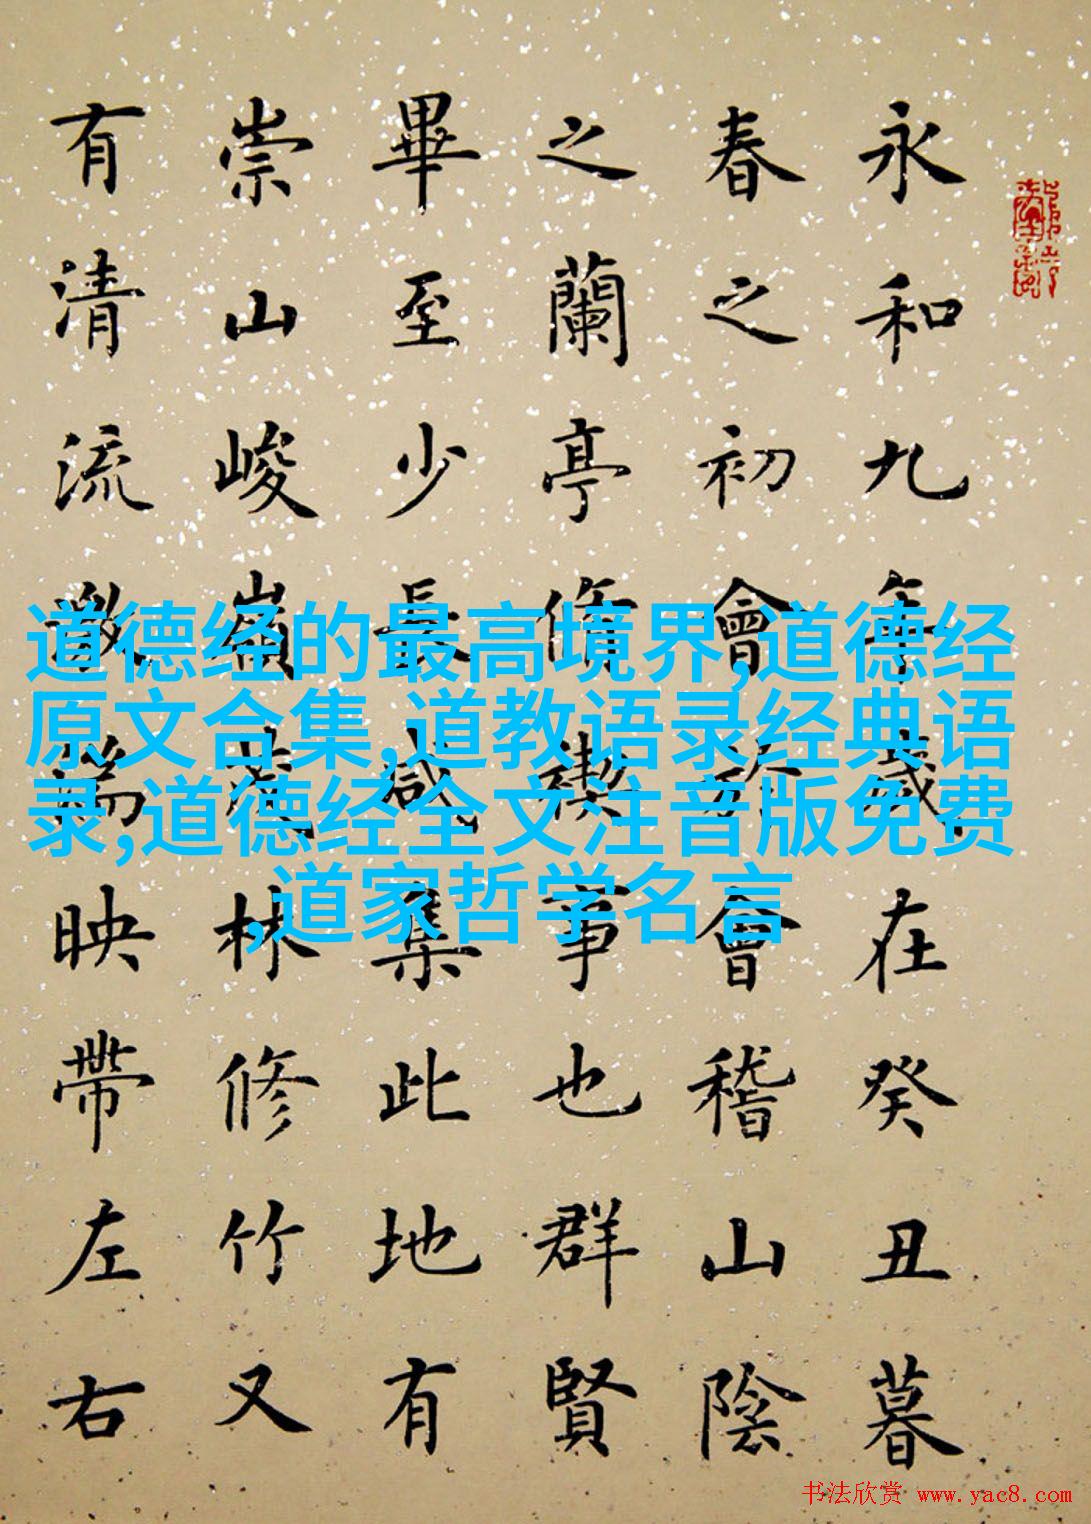 永和九年歲在癸丑暮
春之初會於會稽山陰
之蘭亭脩禊事也群賢
畢至少長咸集此地有
崇山峻嶺茂林修竹又
有清流激湍映帶左右
道德经的最高境界,道德经
原文合集,道教语录经典语
录,道德经全文注音版免费
,道家哲学名言
书法欣赏 www.yac8.com